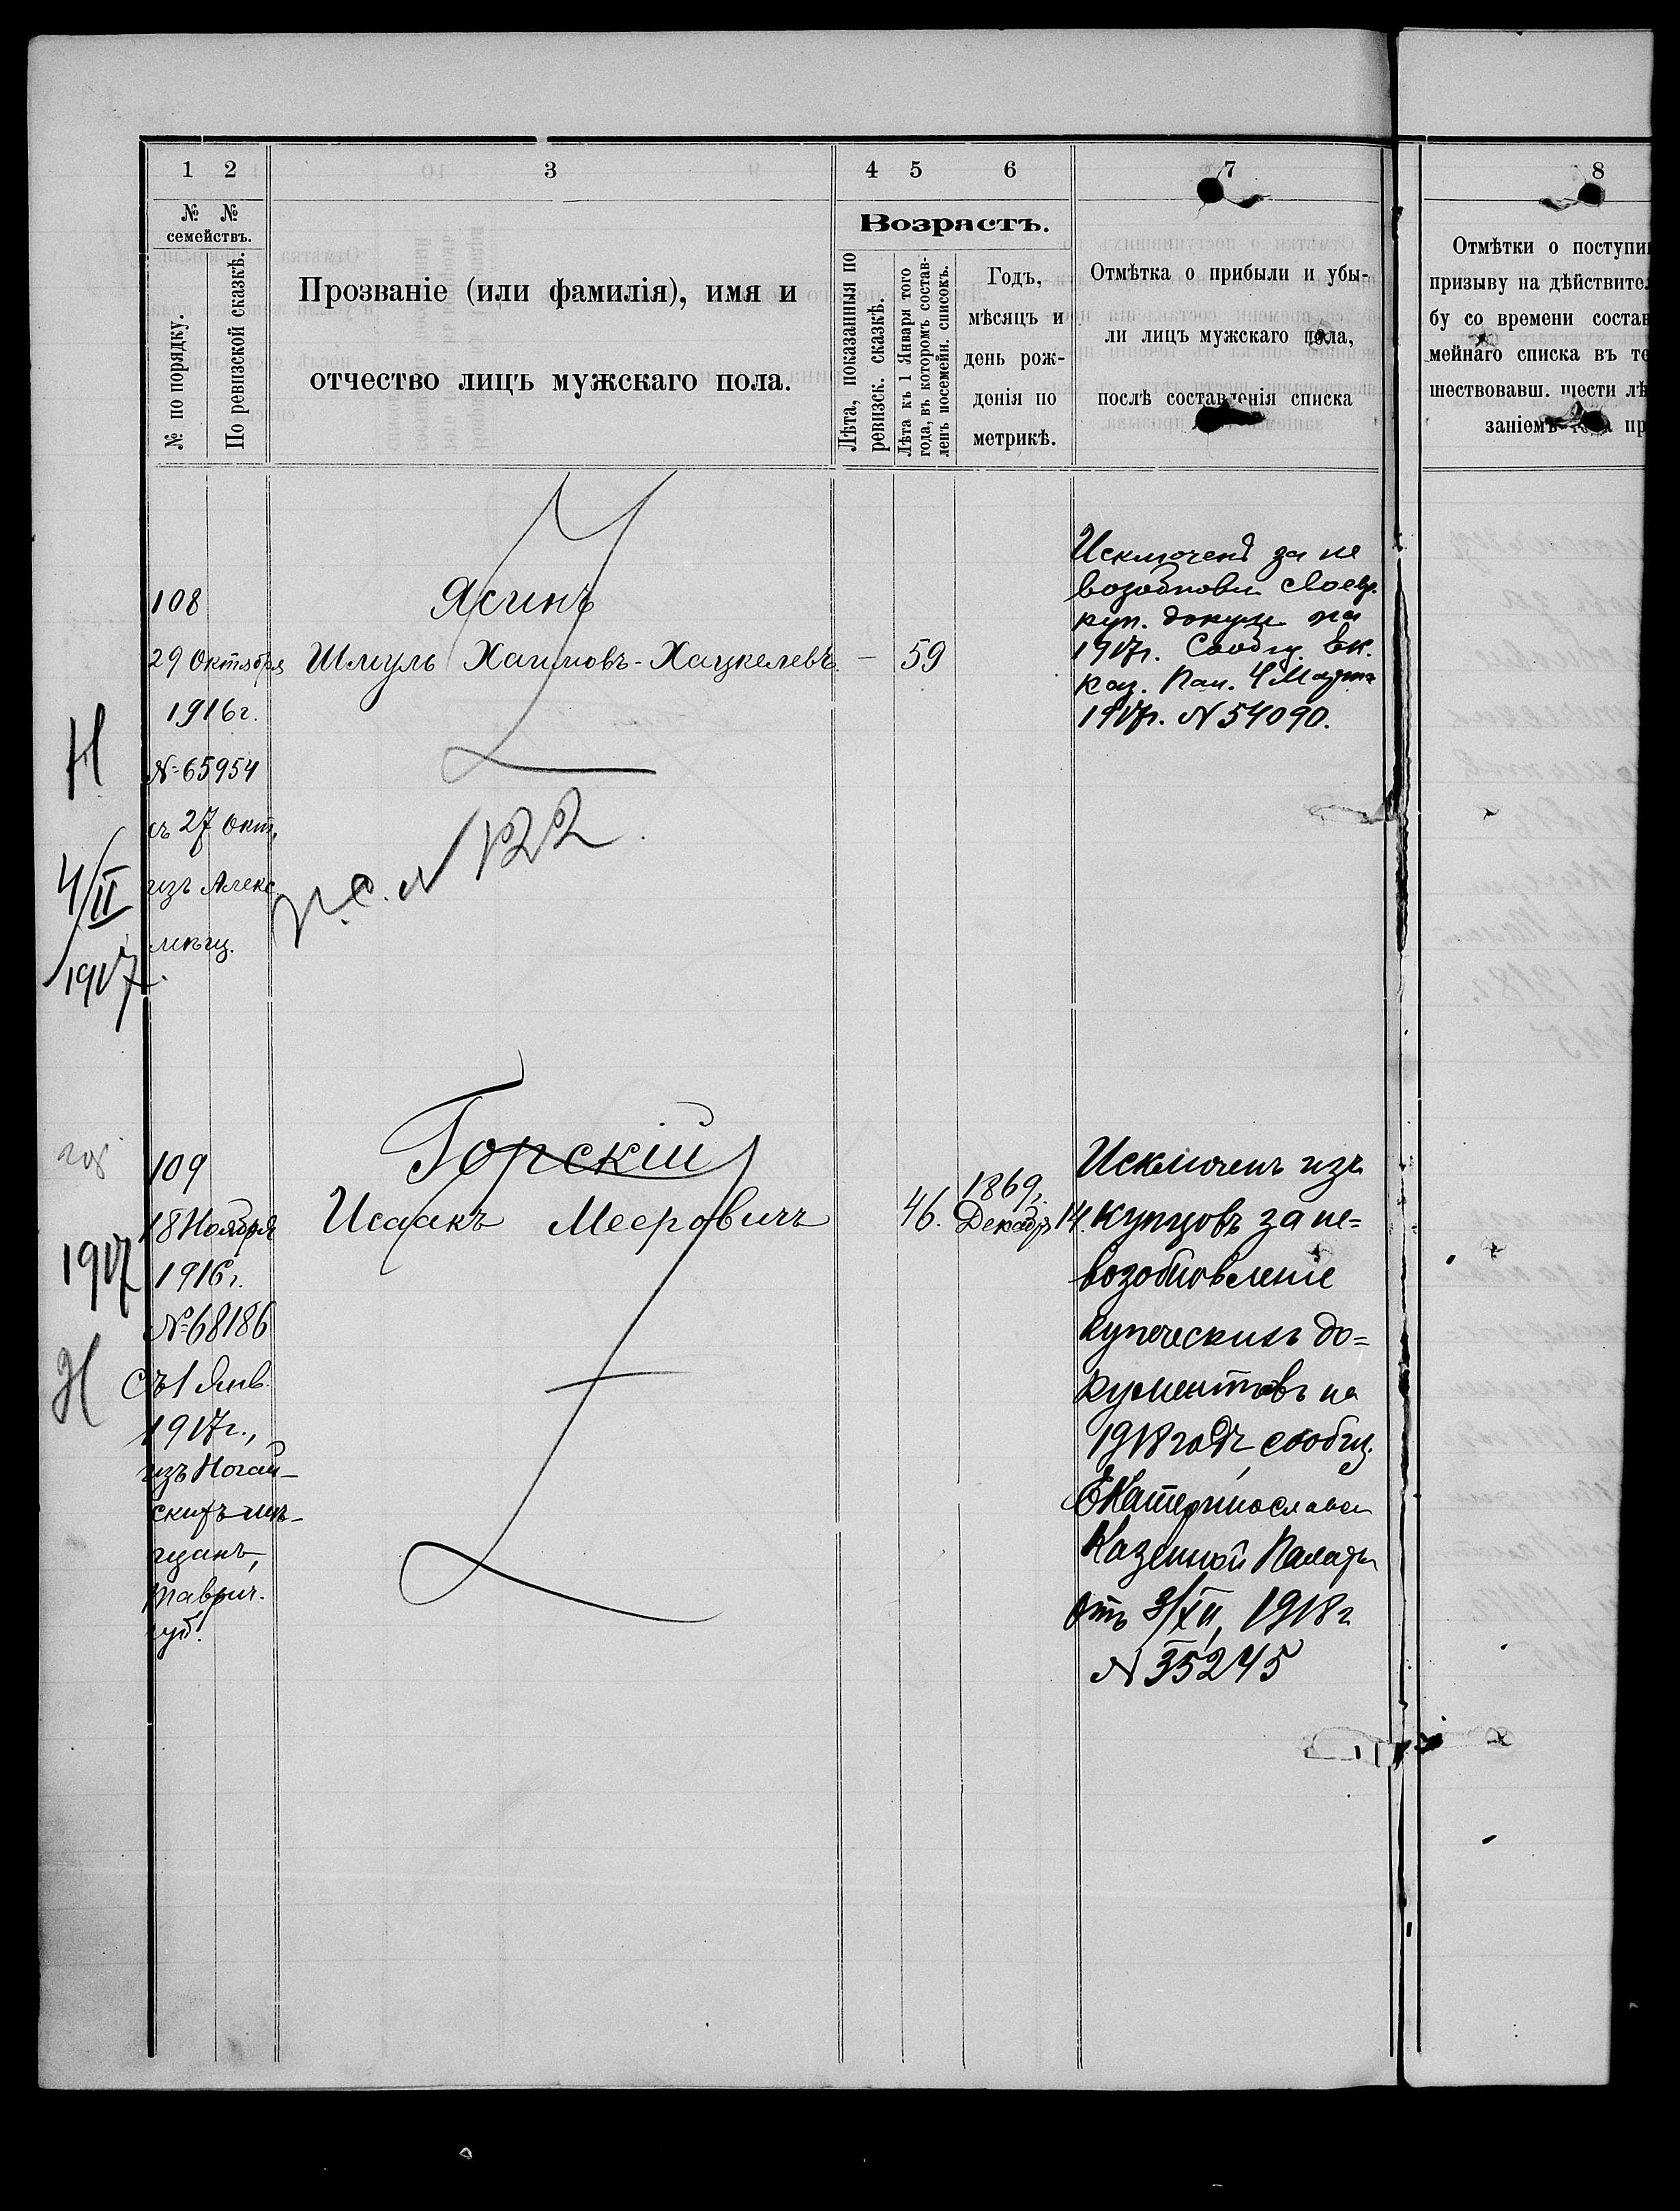 1 2 3 4 5 6 7 8
№ №
семействъ.
№ по порядку.
По ревизской сказкѣ.
Прозваніе (или фамилія), имя и
отчество лицъ мужскаго пола.
Возрастъ.
Лѣта, показанныя по
ревизск. сказкѣ.
Лѣта къ 1 Января того
года, въ которомъ состав-
ленъ посемейн. списокъ.
Годъ,
мѣсяцъ и
день рож-
денія по
метрикѣ.
Отмѣтка о прибыли и убы-
ли лицъ мужскаго пола,
послѣ составленія списка
Отмѣтки о поступи
призыву на дѣйствител
бу со времени состав
мейнаго списка въ те
шествовавш. шести лѣ
заніемъ года пр
108
29 Октября
1916г.
№ 65954
съ 27 Окт.
изъ Алекс.
мѣщ.
Н
4/II
1917
Ясинъ
Шмуль Хаимовъ-Хацкелевъ.
— 59
п.с. № 122.
Исключенъ за не
возобновл. своевр.
куп. докум. на
1917г. Сообщ. Ек.
Каз. Пал. 4 Марта
1917г. № 54090.
109
18 Ноября
1916г.
№ 68186
Съ 1 Янв.
1917г.,
изъ Ногай-
скихъ мѣ-
щанъ,
Таврич.
губ.
1917
Н
Горскій
Исаакъ Мееровичъ
46.
1869,
Декабр. 14.
Исключенъ изъ
купцовъ за не=
возобновленіе
купеческихъ до=
кументовъ на
1918 годъ, сообщ.
Екатеринославск
Казенной Палаты
отъ 3/XII, 1918г
№ 35245